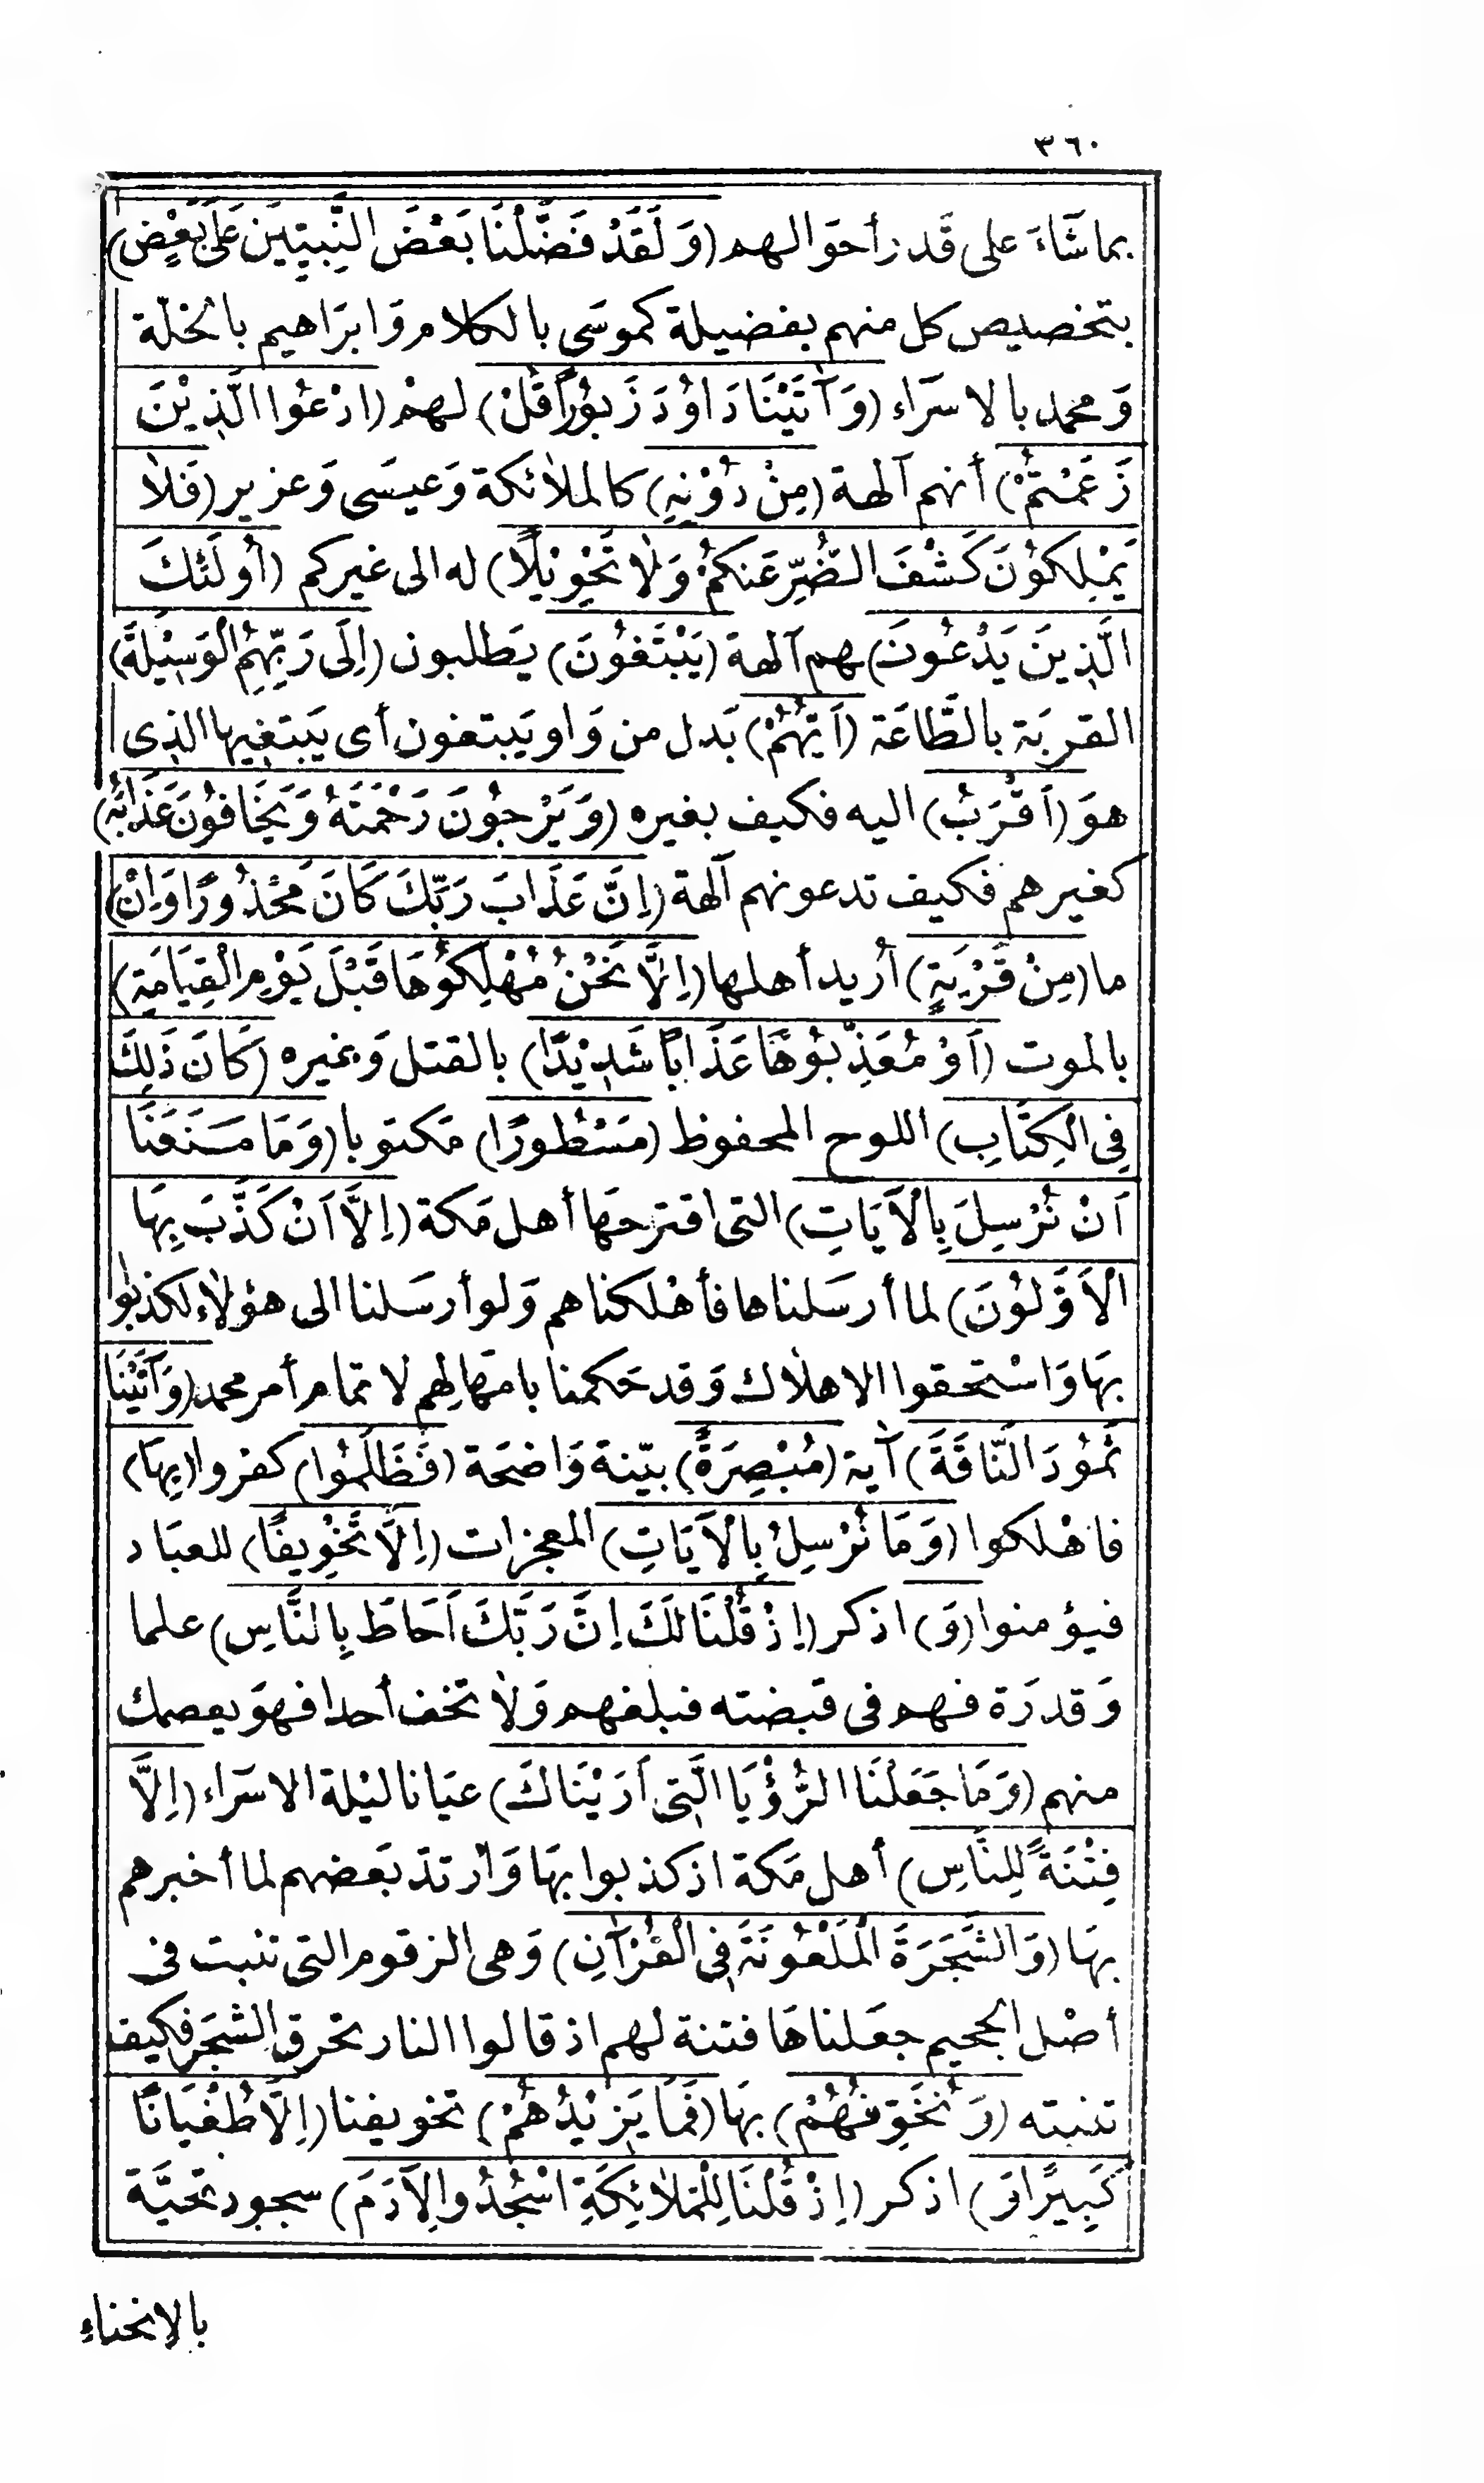 ٣٦٠
بما شَاءَ على قَدر أحوَالهم (وَلَقَدْ فَضَّلْنَا بَعْضَ النَّبِيِّينَ عَلَى بَعْضٍ)
بتخصيص كل منهم بفضيلة كموسَى بالكلام وَابرَاهيم بالخلّة
وَمحمد بالاسرَاء (وَآتَيْنَا دَاوُدَ زَبُوْرًا قُلْ) لهمْ (ادْعُوا الَّذِيْنَ
زَعَمْتُمْ) أنهم آلهة (مِنْ دُوْنِهِ) كالملائكة وَعيسَى وَعزير (فَلَا
يَمْلِكُوْنَ كَشْفَ الضُّرِّ عَنكُمْ وَلَا تَحْوِيْلًا) له الى غيركم (أُولَئِكَ
الَّذِينَ يَدْعُونَ) هم آلهة (يَبْتَغُوْنَ) يَطلبون (إِلَى رَبِّهِمُ الْوَسِيْلَةَ)
القربَة بالطَّاعَة (اَيُّهُمْ) بَدل من وَاو يَبتغون أى يَبتغيها الذى
هوَ (اَقْرَبُ) اليه فكيف بغيره (وَيَرْجُونَ رَحْمَتَهُ وَيَخَافُوْنَ عَذَابَهُ)
كغيرهم فكيف تدعونهم آلهة (اِنَّ عَذَابَ رَبِّكَ كَانَ مَحْذُورًا وَاِنْ)
ما (مِنْ قَرْيَةٍ) أُريد أهلها (اِلَّا نَحْنُ مُهْلِكُوْهَا قَبْلَ يَوْمِ الْقِيَامَةِ)
بالموت (اَوْ مُعَذِّبُوْهَا عَذَابًا شَدِيْدًا) بالقتل وَغيره (كَانَ ذَلِكَ
فِي الْكِتَابِ) اللوح المحفوظ (مَسْطُورًا) مَكتوبا (وَمَا مَنَعَنَا
اَنْ نُرْسِلَ بِالْاَيَاتِ) التى اقترحهَا أهل مَكة (اِلَّا اَنْ كَذَّبَ بِهَا
الْاَوَّلُوْنَ) لما أرسَلناها فأهْلكناهم وَلو أرسَلنا الى هؤلاء لكذبُوا
بهَا وَاسْتحقوا الاهلاك وَقد حَكمنا بامهَالهم لاتمام أمر محمد (وَآتَيْنَا
ثَمُوْدَ النَّاقَةَ) آية (مُبْصِرَةً) بيّنة وَاضحَة (فَظَلَمُوا) كفروا (بِهَا)
فاهْلكوا (وَمَا نُرْسِلُ بِالْاَيَاتِ) المعجزات (اِلَّا تَخْوِيفًا) للعبَاد
فيؤمنوا (وَ) اذكر (اِذْ قُلْنَا لَكَ اِنَّ رَبَّكَ اَحَاطَ بِالنَّاسِ) علما
وَقدرَة فهم فى قبضته فبلغهم وَلا تخف أحدا فهوَ يعصمك
منهم (وَمَا جَعَلْنَا الرُّؤْيَا الَّتِى اَرَيْنَاكَ) عيَانا ليْلة الاسرَاء (اِلَّا
فِتْنَةً لِلنَّاسِ) أهل مَكة اذ كذبوا بهَا وَارتدّ بَعضهم لما أخبرهم
بهَا (وَالشَّجَرَةَ الْمَلْعُونَةَ فِى الْقُرْآنِ) وَهى الزقوم التى تنبت فى
أصْل الجحيم جعَلناهَا فتنة لهم اذ قالوا النار تحرق الشجَر فكيف
تنبته (وَنُخَوِّفُهُمْ) بهَا (فَمَا يَزِيْدُهُمْ) تخويفنا (اِلَّا طُغْيَانًا
كَبِيرًا وَ) اذكر (اِذْ قُلْنَا لِلْمَلَائِكَةِ اسْجُدُوا لِآدَمَ) سجود تحيَّة
بالانحناءِ